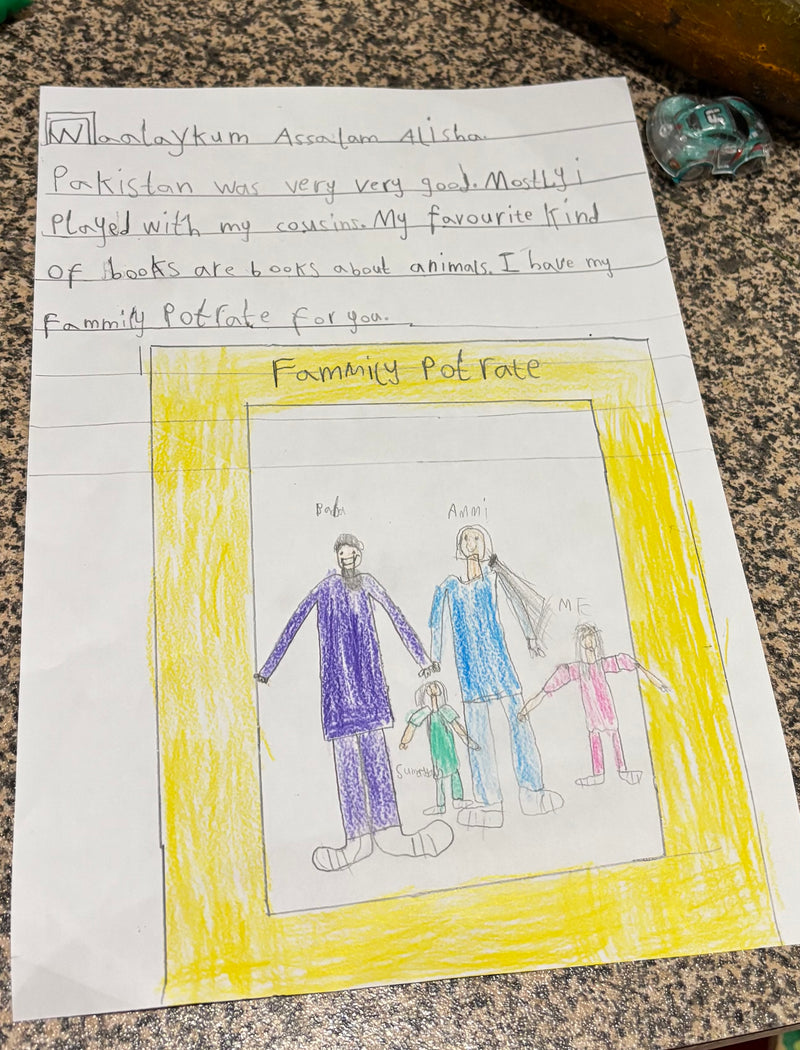 Waalaykum Assalam Alisha.
Pakistan was very very good. Mostly i
Played with my cousins. My favourite kind
of books are books about animals. I have my
Fammily Potrate for you.
Fammily Potrate
Baba
Ammi
ME